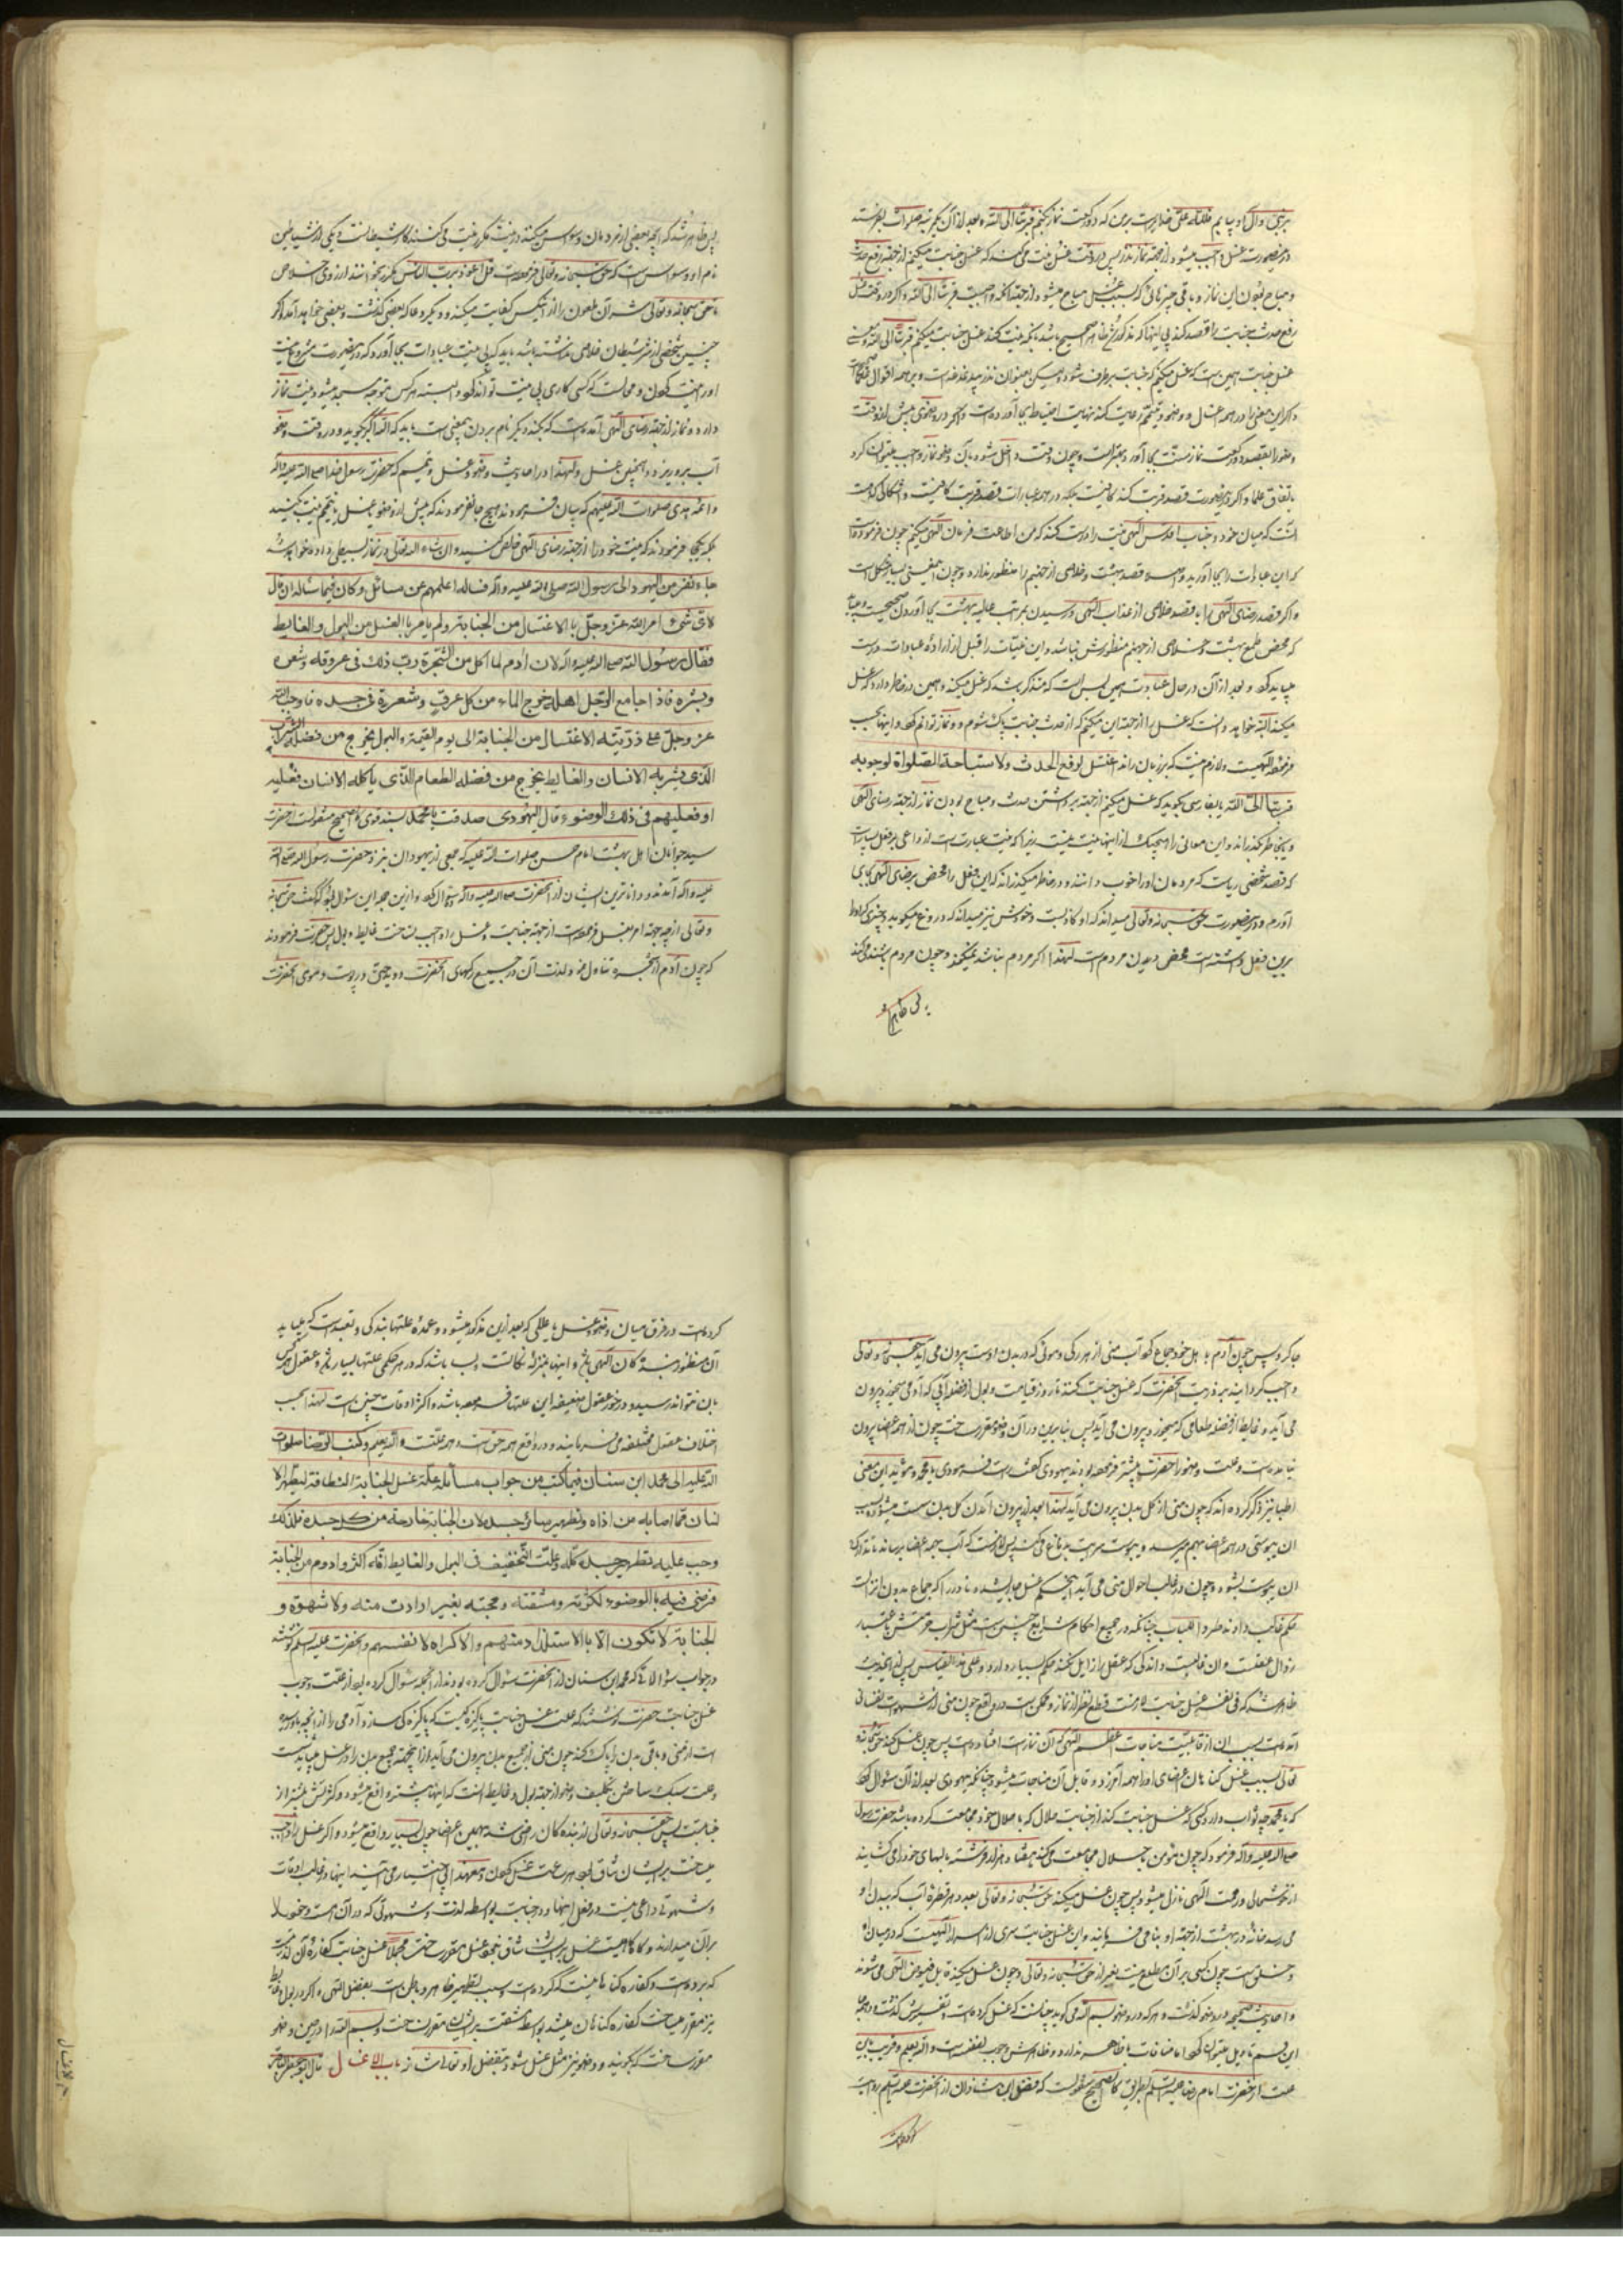 بر نبی و آل او یا بگویم لله علی خداراست برمن که دو رکعت نماز بکنم قربة الی الله و بعد از آن یکمرتبه صلوات بفرستد
درینصورت غسل واجب میشود از جهة نماز نذر پس در وقت غسل نیت می‌کند که غسل جنابت میکنم از جهة رفع حدث
و مباح بودن این نماز و باقی چیزهائی که بسبب غسل مباح میشود از جهة آنکه واجبست قربة الی الله و اگر در وقت غسل
رفع حدث جنابت را قصد کند بی اینها که مذکور شد ظاهرا صحیح باشد بانکه نیت کند غسل جنابت میکنم قربة الی الله و معنی
غسل جنابت همین است که غسل میکنم که جنابت برطرف شود
و اگر این معنی را در همه اغسال و وضو و تیمم رعایت کند نهایت احتیاط بجا آورده است و اگر در وضوی پیش از وقت
وضو را بقصد دو رکعت نماز سنت بجا آورد بهتر است و چون وقت داخل شود بآن وضو نماز واجب میتوان کرد
باتفاق علما و اگر درینصورت قصد قربت کند کافیست بلکه در همه عبارات قصد قربت کافیست و اشکالی که هست
آنست که میان خود و جناب اقدس الهی نیت را درست کند که من اطاعت فرمان الهی میکنم چون فرموده است
که این عبادات را بجا آورید و اصلا قصد بهشت و خلاصی از جهنم را منظور ندارد و چون این معنی بسیار مشکل است
و اگر قصد رضای الهی را با قصد خلاصی از عذاب الهی و رسیدن بمراتب عالیه بهشت بجا آورد صحیحست
که محض طمع بهشت و خلاصی از جهنم منظورش نباشد و این نیات را قبل از اراده عبادات درست
میباید کرد و بعد از آن در حال عبادت همین بس است که متذکر باشد که غسل میکند و همین در خاطر دارد که غسل
میکند البته خواهد دانست که غسل را از جهة این میکنم که از حدث جنابت پاک شوم و نماز توانم کرد و اینها بحسب
فرموده الهیست و لازم نیست که بر زبان راند اغتسل لرفع الحدث ولاستباحة الصلواة لوجوبه
قربة الی الله یا بفارسی بگوید که غسل میکنم از جهة برداشتن حدث و مباح بودن نماز از جهة رضای الهی
و بخاطر گذراند و این معانی را هیچیک از اینها نیت نیست زیرا که نیت عبارتست از داعی بر فعل بسیار است
که قصد شخصی ریاست که مردمان او را خوب دانند و در خاطر میگذراند که این فعل را محض رضای الهی بجای
آورم و درینصورت حق سبحانه و تعالی میداند که او کاذبست و خودش نیز میداند که دروغ میگوید و چیزی که او را
برین فعل داشته است محض دیدن مردم است لهذا اگر مردم نباشند نمیکند و چون مردم باشند میکند
پس ظاهر
پس ظاهر شد که آنچه بعضی از مردمان وسواس میکنند در نیت و مکرر نیت می‌کنند کار شیطانست و یکی از شیاطین
نام او وسواس است که حق سبحانه و تعالی فرموده است قل اعوذ برب الناس مکرر بخوانند از روی اخلاص
تا حق سبحانه و تعالی شر آن ملعون را از این کس کفایت میکند و دیگر دعا که بعضی گذشت و بعضی خواهد آمد و اگر
چنین شخصی از شر شیطان خلاصی نداشته باشد باید که بی نیت عبادات بجا آورد که درینصورت مشروعیت
او را نیت کردن و محالست که کسی کاری بی نیت تواند کرد و البته هر کس متوجه مسجد میشود نیت نماز
دارد و نماز از جهة رضای الهی آمده است که بکند دیگر نام بردن بیمعنی است باید که الله اکبر بگوید و در وقت وضو
آب برو بریزد و همچنین غسل و لهذا در احادیث وضو و غسل و تیمم که حضرت رسول خدا صلی الله علیه و آله
و ائمه هدی صلوات الله علیهم که بیان فرموده‌اند هیچ جا نفرمودند که پیش از وضو یا غسل یا تیمم نیت کنید
بلکه همه جا فرمودند که نیت خود را از جهة رضای الهی خالص کنید و ان شاء الله تعالی در نماز بسطی داده خواهد شد
جاء نفر من الیهود الی رسول الله صلی الله علیه و آله فساله اعلمهم عن مسائل و کان فیما ساله ان قال
لای شئ امر الله عز وجل بالاغتسال من الجنابة ولم یامر بالغسل من البول والغایط
فقال رسول الله صلی الله علیه و اله لان آدم لما اکل من الشجرة دب ذلک فی عروقه و شعره
و بشره فاذا جامع الرجل اهله خرج الماء من کل عرق و شعرة فی جسده فاوجب الله
عز وجل علی ذریته الاغتسال من الجنابة الی یوم القیمة والبول یخرج من فضلة الشراب
الذی یشربه الانسان والغایط یخرج من فضلة الطعام الذی یاکله الانسان فعلیه
او فعلیهم فی ذلک الوضوء قال الیهودی صدقت یا محمد بسند قوی کالصحیح منقولست از حضرت
سید جوانان اهل بهشت امام حسن صلوات الله علیه که جمعی از یهودان بنزد حضرت رسول الله صلی الله
علیه و آله آمدند و داناترین ایشان از آنحضرت صلی الله علیه و آله سؤال کرد و از این جمله این سؤال بود که گفت حق سبحانه
و تعالی از چه جهة امر بغسل فرموده است از جهة جنابت و غسل را واجب نساخت از غایط و بول پس حضرت فرمودند
که چون آدم از شجره تناول نمود لذت آن در جمیع رگهای آنحضرت دوید حتی در پوست و موی آنحضرت
جا کرد و پس چون آدم با اهل خود جماع کرد آب منی از هر رگی و موئی که در بدن اوست بیرون می‌آید حق سبحانه و تعالی
واجب گردانید بر ذریت آنحضرت که غسل جنابت کنند تا روز قیامت و بول از فضله آبی که آدمی میخورد بیرون
می‌آید و غایط از فضله طعامی که میخورد بیرون می‌آید پس بنابرین در آن وضو مقرر ساخت چون از همه اعضا بیرون
نیامده است و علت وضو را حضرت پیشتر فرموده بودند یهودی گفت راست فرمودی یا محمد و مؤید این معنی
اطبا نیز ذکر کرده‌اند که چون منی از کل بدن بیرون می‌آید لهذا بعد از بیرون آمدن کل بدن سست میشود و بسبب
آن یبوستی در همه اعضا بهم میرسد و یبوست سرایت بدماغ می‌کند پس لازمست که آب جمیع اعضا برساند تا تدارک
آن یبوست بشود و چون در غالب احوال منی می‌آید
حکم غالب دادند طردا للباب چنانکه در جمیع احکام شرایع چنین است مثل شراب حرمتش باعتبار
زوال عقلست و آن غالبست و اندکی که عقل را زایل نکند حکم بسیار دارد و علی هذا القیاس پس ازینحدیث
ظاهر شد که فی نفسه غسل جنابت لازمست قطع نظر از نماز و ممکن است در واقع چون منی از شهوات نفسانی
آمده است بسبب آن از قابلیت مناجات اعظم الهی که آن نماز است افتاده است پس چون غسل کند حق سبحانه
و تعالی بسبب غسل گناهان اعضای او را همه آمرزد و قابل آن مناجات میشود چنانکه یهودی بعد از آن سؤال کرد
که یا محمد چه ثواب دارد کسی که غسل جنابت کند از جنابت حلال که با حلال خود مجامعت کرده باشد حضرت رسول
صلی الله علیه و آله فرمود که چون مؤمن با حلال مجامعت می‌کند هفتاد هزار فرشته بالهای خود را می‌گشایند
از خوشحالی و رحمت الهی نازل میشود پس چون غسل میکند حق سبحانه و تعالی بعدد هر قطره آب که ببدن او
می‌رسد خانه در بهشت از جهة او بنا می‌فرماید و این غسل جنابت سری از اسرار الهیست که در میان او
و خلق است چون کسی بر آن مطلع نیست بغیر از حق سبحانه و تعالی و چون غسل میکند قابل فیوض الهی می‌شوند
و احادیث صحیحه در وضو گذشت و هر که در وضو بسم الله می‌گوید چنانست که غسل کرده است و تفسیرش گذشت
علت از حضرت امام رضا علیه السلم بطریق کالصحیح منقولست که فضل ابن شاذان از آنحضرت علیه السلم روایت
کرده است
کرده است در فرق میان وضو و غسل با عللی که بعد ازین مذکور میشود و عمده علتها بندگی و تعبد است که میباید
بآن نتواند رسید و در خور عقول ضعیفه این علتها فرموده باشند و اکثر اوقات چنین است لهذا بحسب
اختلاف عقول مختلفه می‌فرمایند و در واقع همه حق است و همه علت و الله یعلم و کتب الرضا صلوات
الله علیه الی محمد ابن سنان فیما کتب من جواب مسائله علة غسل الجنابة النظافة لتطهیر الا
نسان مما اصابه من اذاه و تطهیر سائر جسده لان الجنابة خارجة من کل جسده فلذلک
وجب علیه تطهیر جسده کله وعلت التخفیف فی البول والغایط انه اکثر و ادوم من الجنابة
فرضی فیه بالوضوء لکثرته و مشقته و مجیئه بغیر ارادت منه ولا شهوة و
الجنابة لا تکون الا بالاستلذاذ منهم والاکراه لانفسهم و آنحضرت علیه السلم نوشتند
در جواب سؤالاتی که محمد ابن سنان از آنحضرت سؤال کرده بودند از آنجمله سؤال کرده بود از علت وجوب
غسل جنابت حضرت نوشتند که علت غسل جنابت پاکیزه‌گیست که پاکیزه‌گی سازد آدمی را از آنچه باو رسیده
است از منی و باقی بدن را پاک کند چون منی از جمیع بدن بیرون می‌آید از اینجهة جمیع بدن را در غسل میباید شست
و علت سبک ساختن تکلیف وضو از جهة بول و غایط آنست که اینها بیشتر واقع میشود و کثرتش بیشتر از
جنابت پس حق سبحانه و تعالی از بنده‌گان راضی شد بهمین اعضا چون بسیار واقع میشود و اگر غسل را واجب
میساخت بر ایشان شاق بود هر ساعت غسل کردن و معهذا بی اختیار می‌آیند اینها در غالب اوقات
و شهوتی داعی نیست در فعل اینها و در جنابت بواسطه لذت و شهوتی که در آن هست خود را
بر آن میدارند
که برده است و کفاره گناهانیست که کرده است و سبب تطهیر ظاهر و باطن است بفضل الهی و اگر در بول و غایط
نیز مقرر میساخت کفاره گناهان میشد بواسطه مشقت بر ایشان مقرر نساخت و بسم الله را در حین وضو
مقرر ساخت که بگویند و وضو نیز مثل غسل شود بتفضل او تعالی شانه باب الاغسال قال ابو جعفر الباقر
باب الاغسال